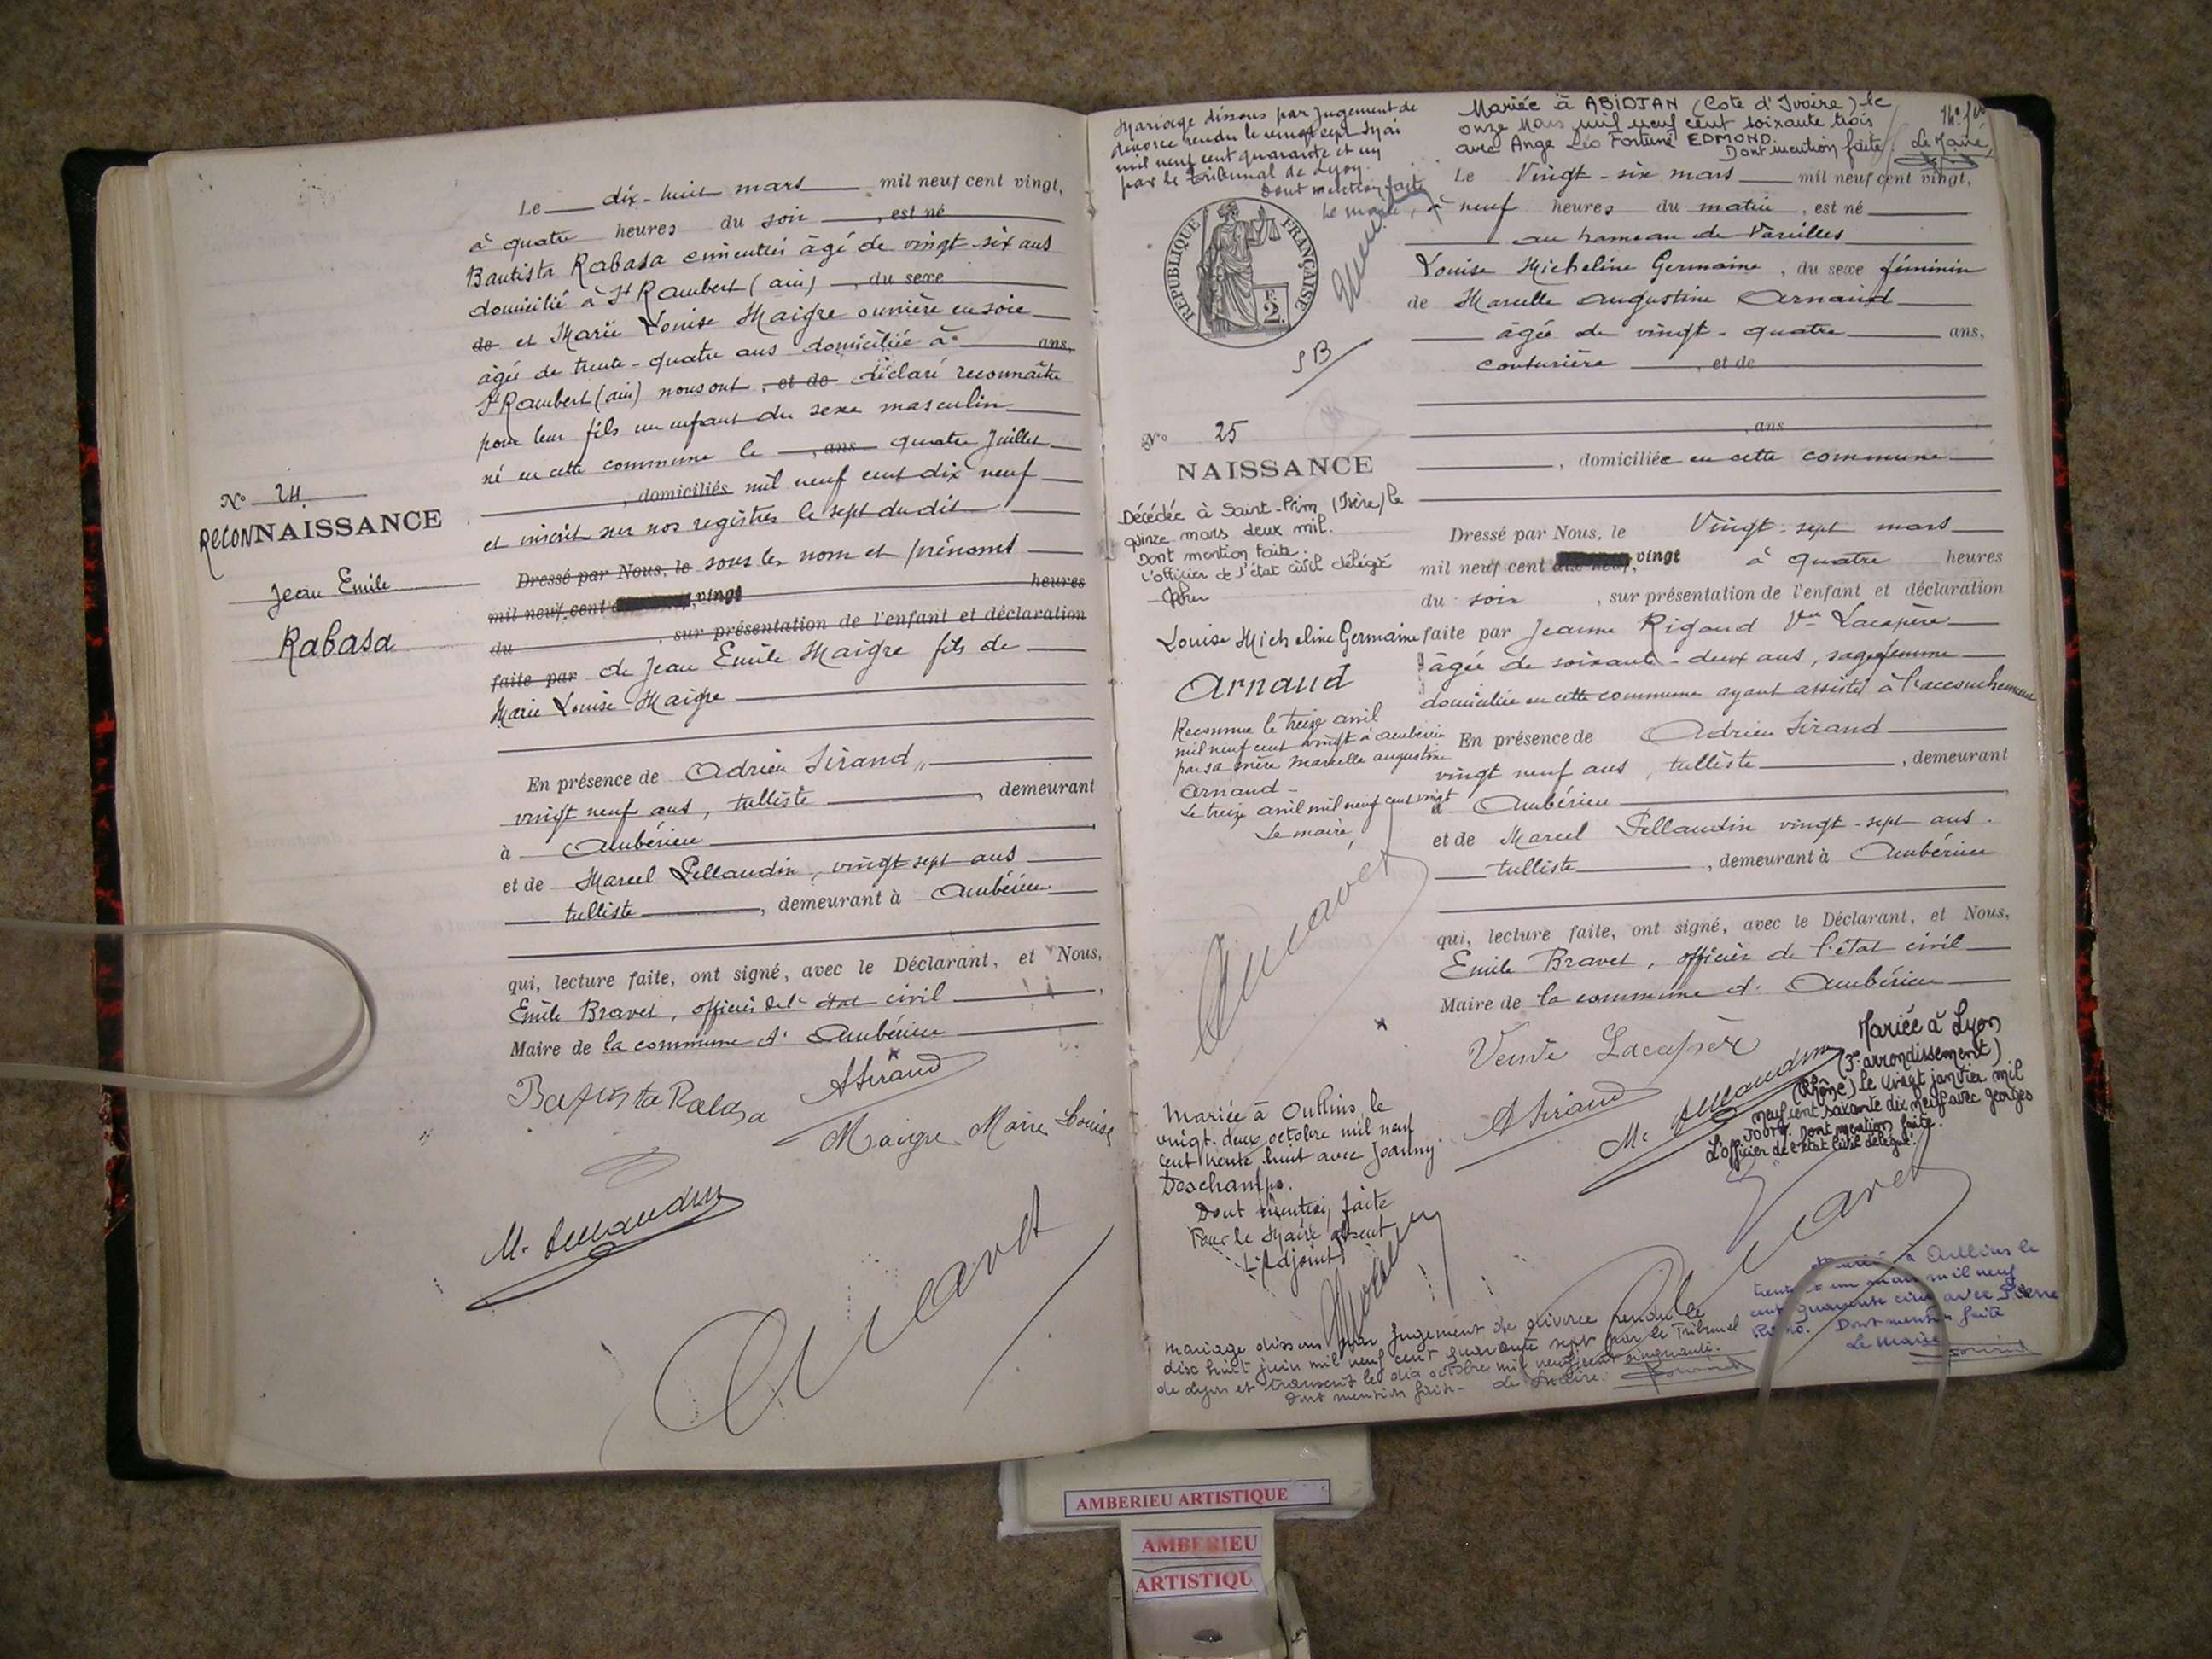 Le dix-huit mars mil neuf cent vingt,
à quatre heures du soir , est né
Bautista Rabasa cimentier âgé de vingt-six ans
domicilié à St Rambert (ain) , du sexe
de et Marie Louise Maigre ouvrière en soie
âgée de trente-quatre ans domiciliée à ans,
St Rambert (ain) nous ont , et de déclaré reconnaître
pour leur fils un enfant du sexe masculin
né en cette commune le , ans quatre Juillet
, domiciliés mil neuf cent dix neuf
et inscrit sur nos registres le sept du dit
Dressé par Nous, le sous les nom et prénoms
mil neuf cent vingt heures
du , sur présentation de l'enfant et déclaration
faite par de Jean Emile Maigre fils de
Marie Louise Maigre
N° 24
RECONNAISSANCE
Jean Emile
Rabasa
En présence de Adrien Sirand
vingt neuf ans, tulliste , demeurant
à Ambérieu
et de Marcel Pellaudin, vingt sept ans
tulliste , demeurant à Ambérieu
qui, lecture faite, ont signé, avec le Déclarant, et Nous,
Emile Bravet, officier de l' état civil
Maire de la commune d' Ambérieu
Bautista Rabasa ASirand
Maigre Marie Louise
Mariage dissous par Jugement de
divorce rendu le vingt sept Mai
mil neuf cent quarante et un
par le Tribunal de Lyon
Dont mention faite
Le maire,
Mariée à ABIDJAN (Cote d'Ivoire) le
onze Mars mil neuf cent soixante trois
avec Ange Léo Fortuné EDMOND
Dont mention faite Le Maire,
REPUBLIQUE FRANÇAISE
2
SB
Le Vingt-six mars mil neuf cent vingt,
à neuf heures du matin , est né
au hameau de Vareilles
Louise Micheline Germaine , du sexe féminin
de Marcelle Augustine Arnaud
âgée de vingt-quatre ans,
couturière , et de
, ans
, domiciliée en cette commune
N° 25
NAISSANCE
Décédée à Saint-Prim (Isère) le
quinze mars deux mil.
Dont mention faite.
L'officier de l'état civil délégué
Louise Micheline Germaine
Arnaud
Reconnue le treize avril
mil neuf cent vingt à Ambérieu
par sa mère Marcelle Augustine
Arnaud -
Le treize avril mil neuf cent vingt
Le maire,
Dressé par Nous, le Vingt-sept mars
mil neuf cent vingt à quatre heures
du soir , sur présentation de l'enfant et déclaration
faite par Jeanne Rigaud Vve Lacapère
âgée de soixante-deux ans, sage femme
domiciliée en cette commune ayant assisté à l'accouchement
En présence de Adrien Sirand
vingt neuf ans, tulliste , demeurant
à Ambérieu
et de Marcel Pellaudin vingt-sept ans.
tulliste , demeurant à Ambérieu
qui, lecture faite, ont signé, avec le Déclarant, et Nous,
Emile Bravet, officier de l'état civil
Maire de la commune d' Ambérieu
Veuve Lacapère
ASirand
Mariée à Lyon
(3e arrondissement)
(Rhône) le vingt janvier mil
neuf cent soixante dix neuf avec Georges
. Dont mention faite.
L'officier de l'état civil délégué.
Mariée à Oullins le
vingt-deux octobre mil neuf
cent trente huit avec Joanny
Deschamps.
Dont mention faite
Pour le Maire absent
L'Adjoint
Mariée à Oullins le
trente et un mars mil neuf
cent quarante cinq avec Pierre
Dont mention faite
Le Maire
Mariage dissous par Jugement de divorce rendu le
dix huit juin mil neuf cent quarante sept par le Tribunal
de Lyon et transcrit le dix octobre mil neuf cent cinquante.
Dont mention faite - Le Maire.
AMBERIEU ARTISTIQUE
AMBERIEU
ARTISTIQU